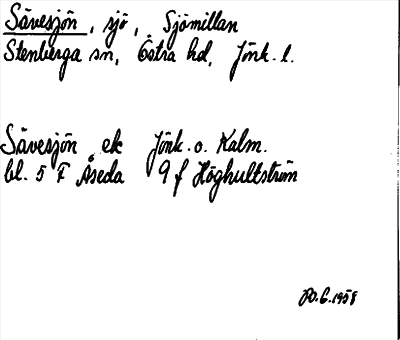 Sävesjön, sjö, Sjömillan
Stenberga sn, Östra hd, Jönk. l.
Sävesjön ek Jönk. o. Kalm.
bl. 5 F Åseda 9 f Höghultström
1958